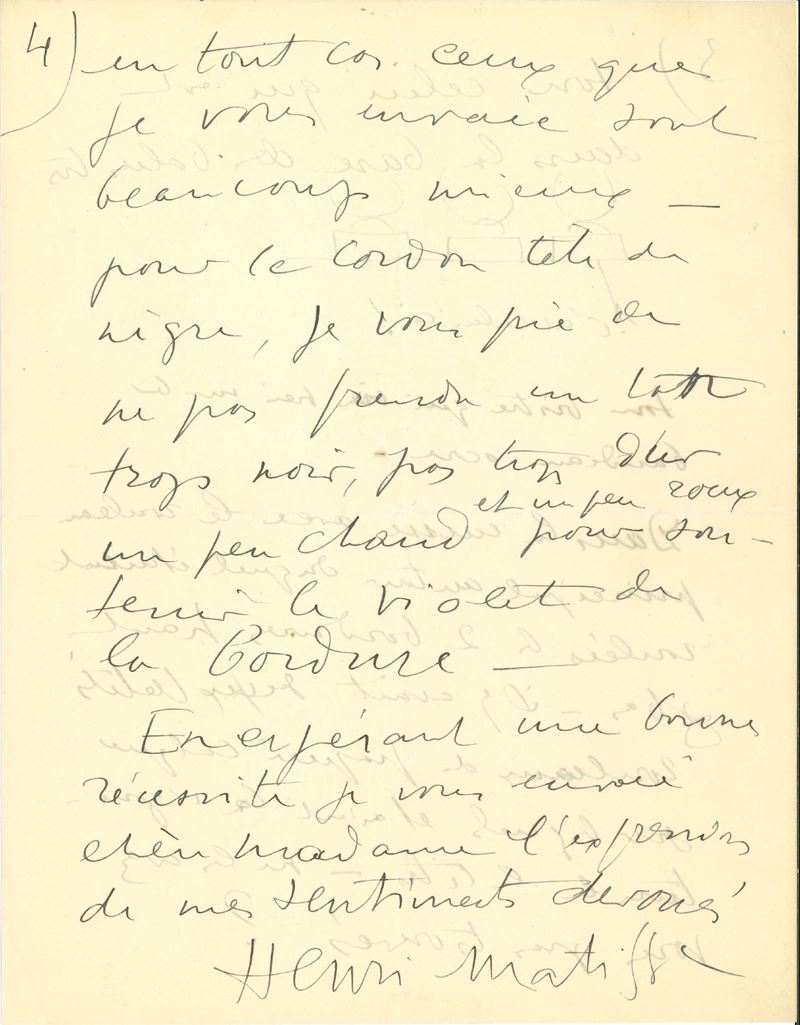 4) en tout cas ceux que
je vous envoie sont
beaucoup mieux —
pour le cordon tête de
nègre, je vous prie de
ne pas prendre un ton
trop noir, pas trop dur
et un peu roux
un peu chaud pour sou-
tenir le violet de
la bordure —
En espérant une bonne
réussite je vous envoie
chère madame l'expression
de mes sentiments dévoués
Henri Matisse